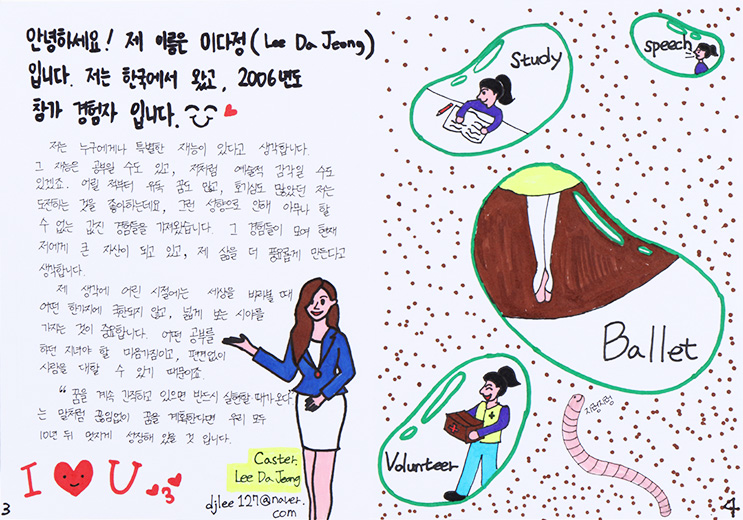 안녕하세요! 제 이름은 이다정(Lee Da Jeong)
입니다. 저는 한국에서 왔고, 2006년도
참가 경험자 입니다.
저는 누구에게나 특별한 재능이 있다고 생각합니다.
그 재능은 공부일 수도 있고, 저처럼 예술적 감각일 수도
있겠죠. 어릴 적부터 유독 꿈도 많고, 호기심도 많았던 저는
도전하는 것을 좋아하는데요, 그런 성향으로 인해 아무나 할
수 없는 값진 경험들을 가져왔습니다. 그 경험들이 모여 현재
저에게 큰 자산이 되고 있고, 제 삶을 더 풍요롭게 만든다고
생각합니다.
제 생각에 어린 시절에는 세상을 바라볼 때
어떤 한가지에 국한되지 않고, 넓게 보는 시야를
가지는 것이 중요합니다. 어떤 공부를
하던 지녀야 할 마음가짐이고, 편견없이
사람을 대할 수 있기 때문이죠.
"꿈을 계속 간직하고 있으면 반드시 실현할 때가 온다"
는 말처럼 끊임없이 꿈을 계획한다면 우리 모두
10년 뒤 멋지게 성장해 있을 것 입니다.
I U
3
Caster.
Lee Da Jeong
djlee127@naver.
com
3
Study
speech
Ballet
Volunteer
지렁이
4